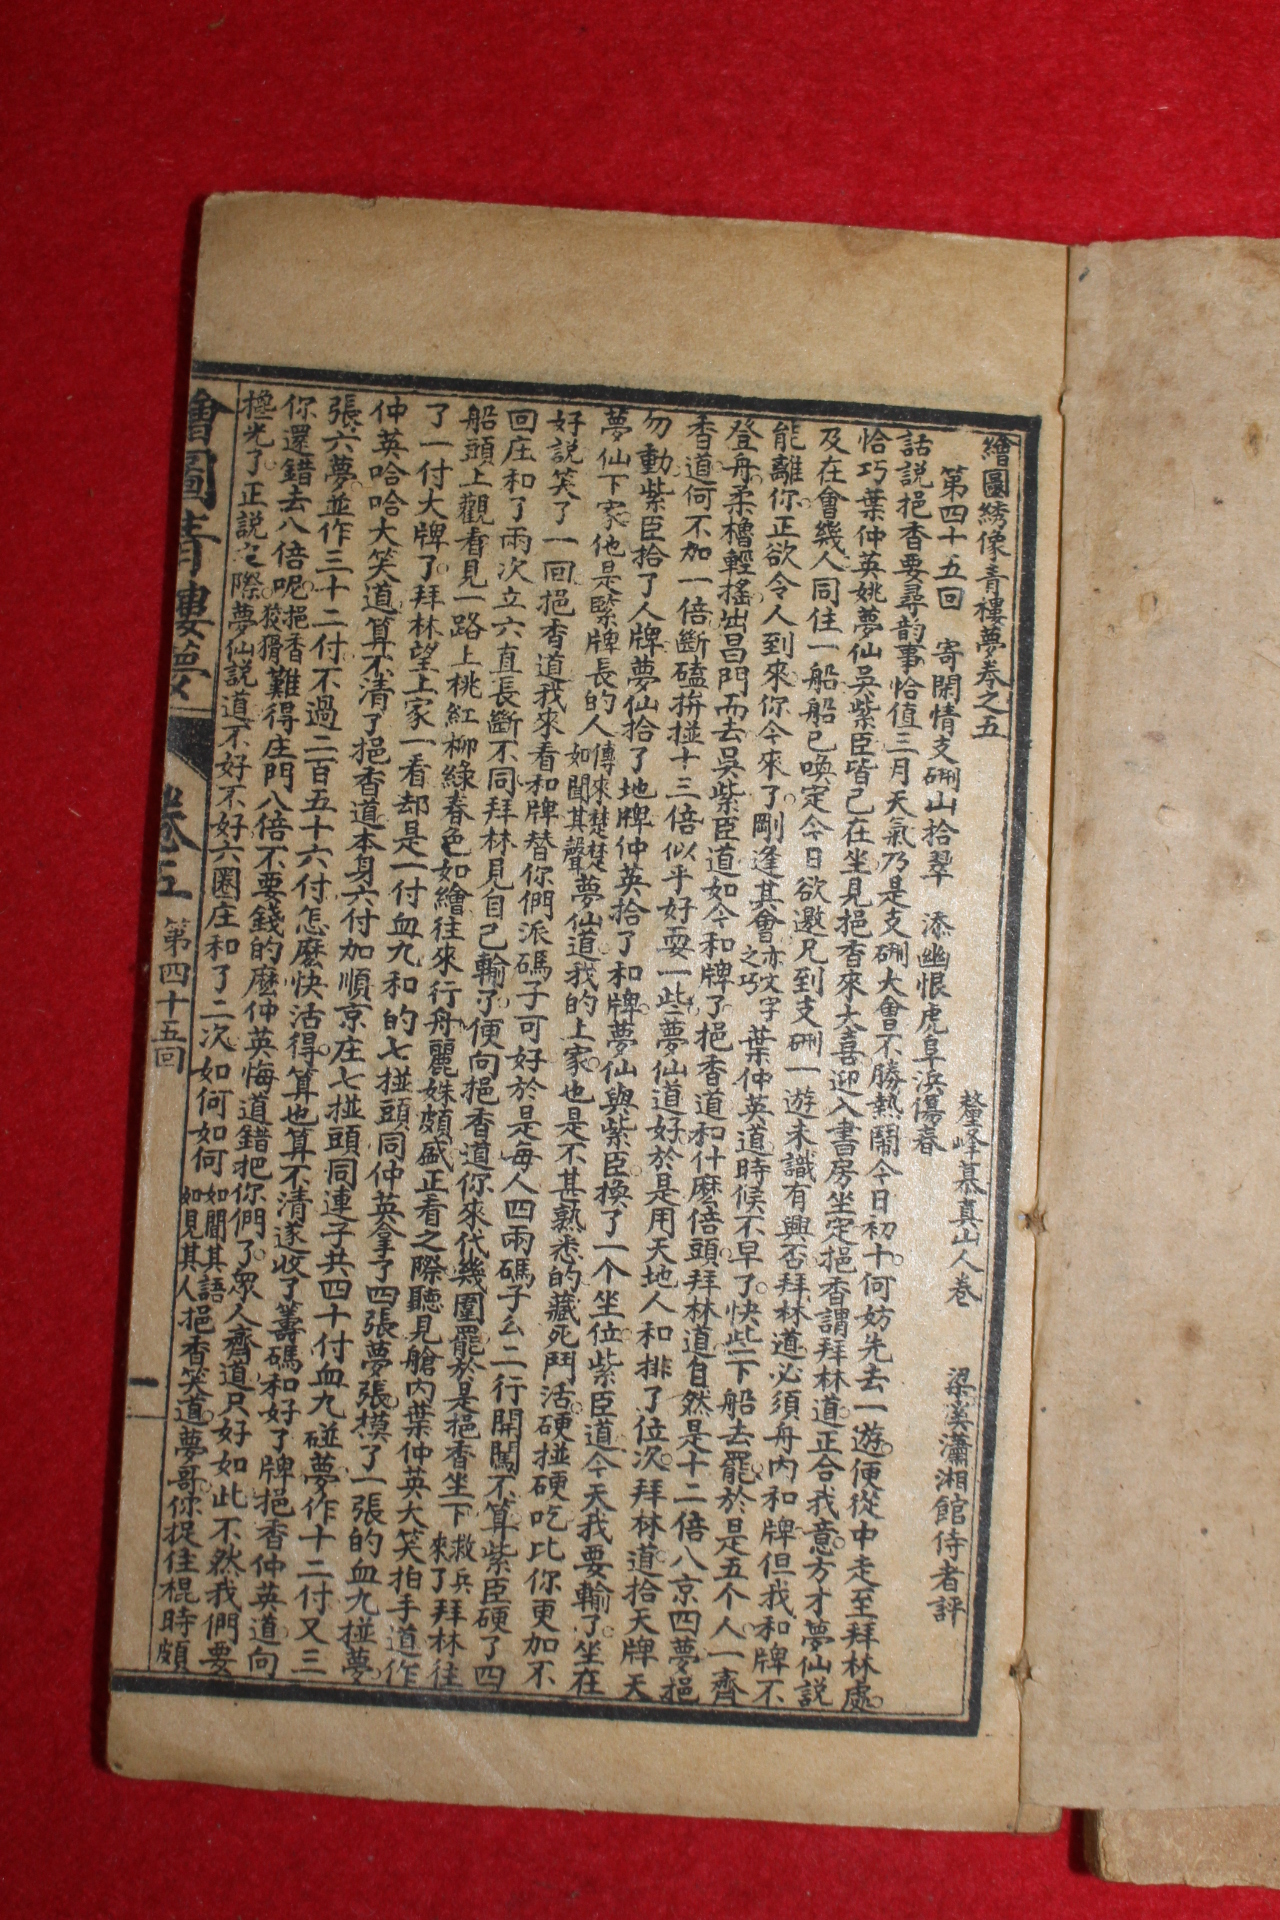 繪圖綉像青樓夢卷之五
釐峰慕真山人卷 梁溪瀟湘館侍者評
第四十五回 寄閑情支硎山拾翠 添幽恨虎阜浜傷春
話說挹香要尋韵事恰值三月天氣乃是支硎大會不勝熱鬧今日初十何妨先去一遊便從中走至拜林處
恰巧葉仲英姚夢仙吳紫臣皆已在坐見挹香來大喜迎入書房坐定挹香謂拜林道正合我意方才夢仙說
及在會幾人同往一船船已喚定今日欲邀兄到支硎一遊未識有興否拜林道必須舟內和牌但我和牌不
能離你正欲令人到來你今來了剛逢其會亦文字之巧葉仲英道時候不早了快些下船去罷於是五個人一齊
登舟柔櫓輕搖出昌門而去吳紫臣道如今和牌了挹香道和什麽倍頭拜林道自然是十二倍八京四夢挹
香道何不加一倍斷磕拚掽十三倍似乎好耍一些夢仙道好於是用天地人和排了位次拜林道拾天牌天
勿動紫臣拾了人牌夢仙拾了地牌仲英拾了和牌夢仙與紫臣換了一个坐位紫臣道今天我要輸了坐在
夢仙下家他是緊牌長的人傳來楚楚如聞其聲夢仙道我的上家也是不甚熟悉的藏死鬥活硬掽硬吃比你更加不
好說笑了一回挹香道我來看和牌替你們派碼子可好於是每人四兩碼子么二行開闖不算紫臣硬了四
回庄和了兩次立六直長斷不同拜林見自己輸了便向挹香道你來代幾圍罷於是挹香坐下救兵來了拜林往
船頭上觀看見一路上桃紅柳綠春色如繪往來行舟麗姝頗盛正看之際聽見艙內葉仲英大笑拍手道作
了一付大牌了拜林望上家一看却是一付血九和的七掽頭同仲英拿了四張夢張摸了一張的血九掽夢
仲英哈哈大笑道算不清了挹香道本身六付加順京庄七掽頭同連子共四十付血九碰夢作十二付又三
張六夢並作三十二付不過二百五十六付怎麽快活得算也算不清遂收了籌碼和好了牌挹香仲英道向
你還錯去八倍呢挹香狡猾難得庄門八倍不要錢的麽仲英悔道錯把你們了衆人齊道只好如此不然我們要
㩦光了正說之際夢仙說道不好不好六圈庄和了二次如何如何如聞其語如見其人挹香笑道夢哥你捉住棍時頗
繪圖青樓夢 卷五 第四十五回 一